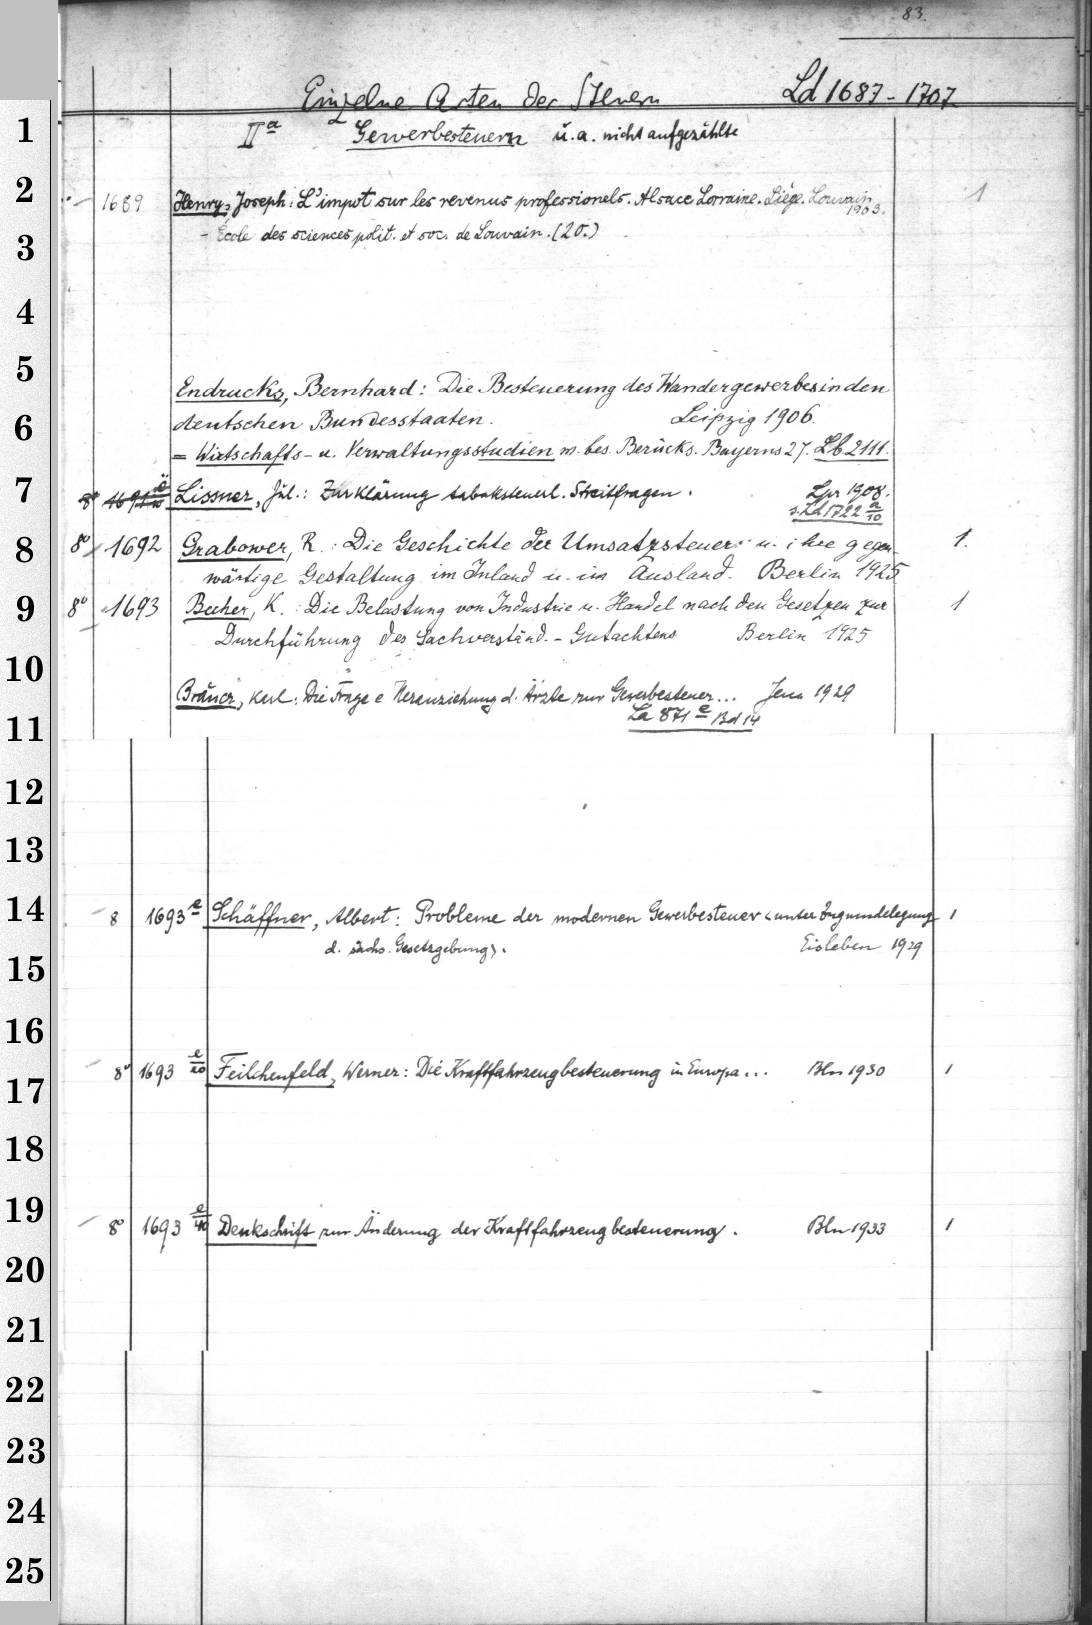 83.
Einzelne Arten der Steuern Ld 1687-1707
II a Gewerbesteuern u. a. nicht aufgezählte
1
2 1689 Henry, Joseph: L'impot sur les revenus professionels. Alsace Lorraine. Liège. Louvain 1903. 1
- École des sciences polit. et soc. de Louvain. (20.)
3
4
5
Endrucks, Bernhard: Die Besteuerung des Wandergewerbes in den
6 deutschen Bundesstaaten. Leipzig 1906.
= Wirtschafts- u. Verwaltungsstudien m. bes. Berücks. Bayerns 27. Lb 2111.
7 8° 1691 Lissner, Jul.: Zur Klärung tabaksteuerl. Streitfragen. Lpz 1908.
s. Ld 1722 a/10
8 8° 1692 Grabower, R.: Die Geschichte der Umsatzsteuer u. ihre gegen-
wärtige Gestaltung im Inland u. im Ausland. Berlin 1925 1.
9 8° 1693 Becher, K.: Die Belastung von Industrie u. Handel nach den Gesetzen zur 1
Durchführung des Sachverständ.-Gutachtens Berlin 1925
10
Bräuer, Karl: Die Frage e Heranziehung d. Ärzte zur Gewerbesteuer... Jena 1929
11 La 871 e Bd 14
12
13
14 8 1693 e Schäffner, Albert: Probleme der modernen Gewerbesteuer <unter Zugrundelegung 1
d. sächs. Gesetzgebung>. Eisleben 1929
15
16
17 8° 1693 e/20 Feilchenfeld, Werner: Die Kraftfahrzeugbesteuerung in Europa... Bln 1930 1
18
19 8° 1693 e/40 Denkschrift zur Änderung der Kraftfahrzeugbesteuerung. Bln 1933 1
20
21
22
23
24
25